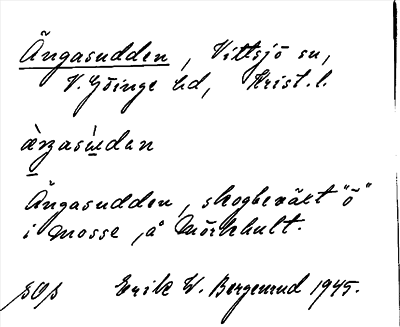 Ängasudden, Vittsjö sn,
V. Göinge hd, Krist. l.
Ängasudden, skogbeväxt "ö"
i mosse, å Mörkhult.
Erik W. Bergenrud 1945.